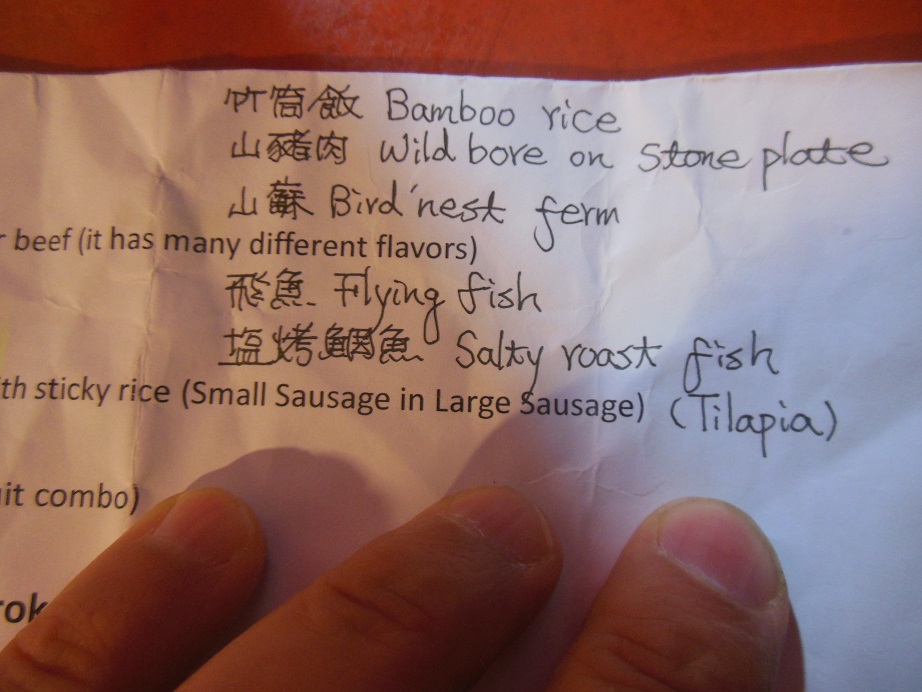 竹筒飯 Bamboo rice
山豬肉 Wild bore on Stone plate
山蘇 Bird'nest ferm
r beef (it has many different flavors)
飛魚 Flying fish
塩烤鯛魚 Salty roast fish
th sticky rice (Small Sausage in Large Sausage) (Tilapia)
uit combo)
rok